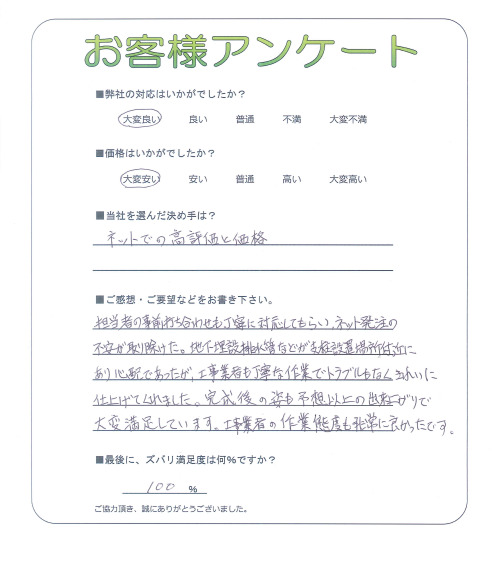 お客様アンケート
■弊社の対応はいかがでしたか？
大変良い 良い 普通 不満 大変不満
■価格はいかがでしたか？
大変安い 安い 普通 高い 大変高い
■当社を選んだ決め手は？
ネットでの高評価と価格
■ご感想・ご要望などをお書き下さい。
担当者の事前打ち合わせも丁寧に対応してもらい、ネット発注の
不安が取り除けた。地下埋設排水管などが支柱設置場所付近に
あり心配であったが、工事業者も丁寧な作業でトラブルもなくきれいに
仕上げてくれました。完成後の姿も予想以上の出来上がりで
大変満足しています。工事業者の作業態度も非常に良かったです。
■最後に、ズバリ満足度は何%ですか？
100 %
ご協力頂き、誠にありがとうございました。